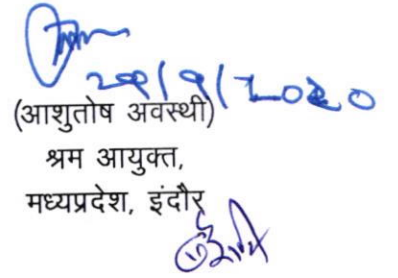 /9/2020
(आशुतोष अवस्थी)
श्रम आयुक्त,
मध्यप्रदेश, इंदौर